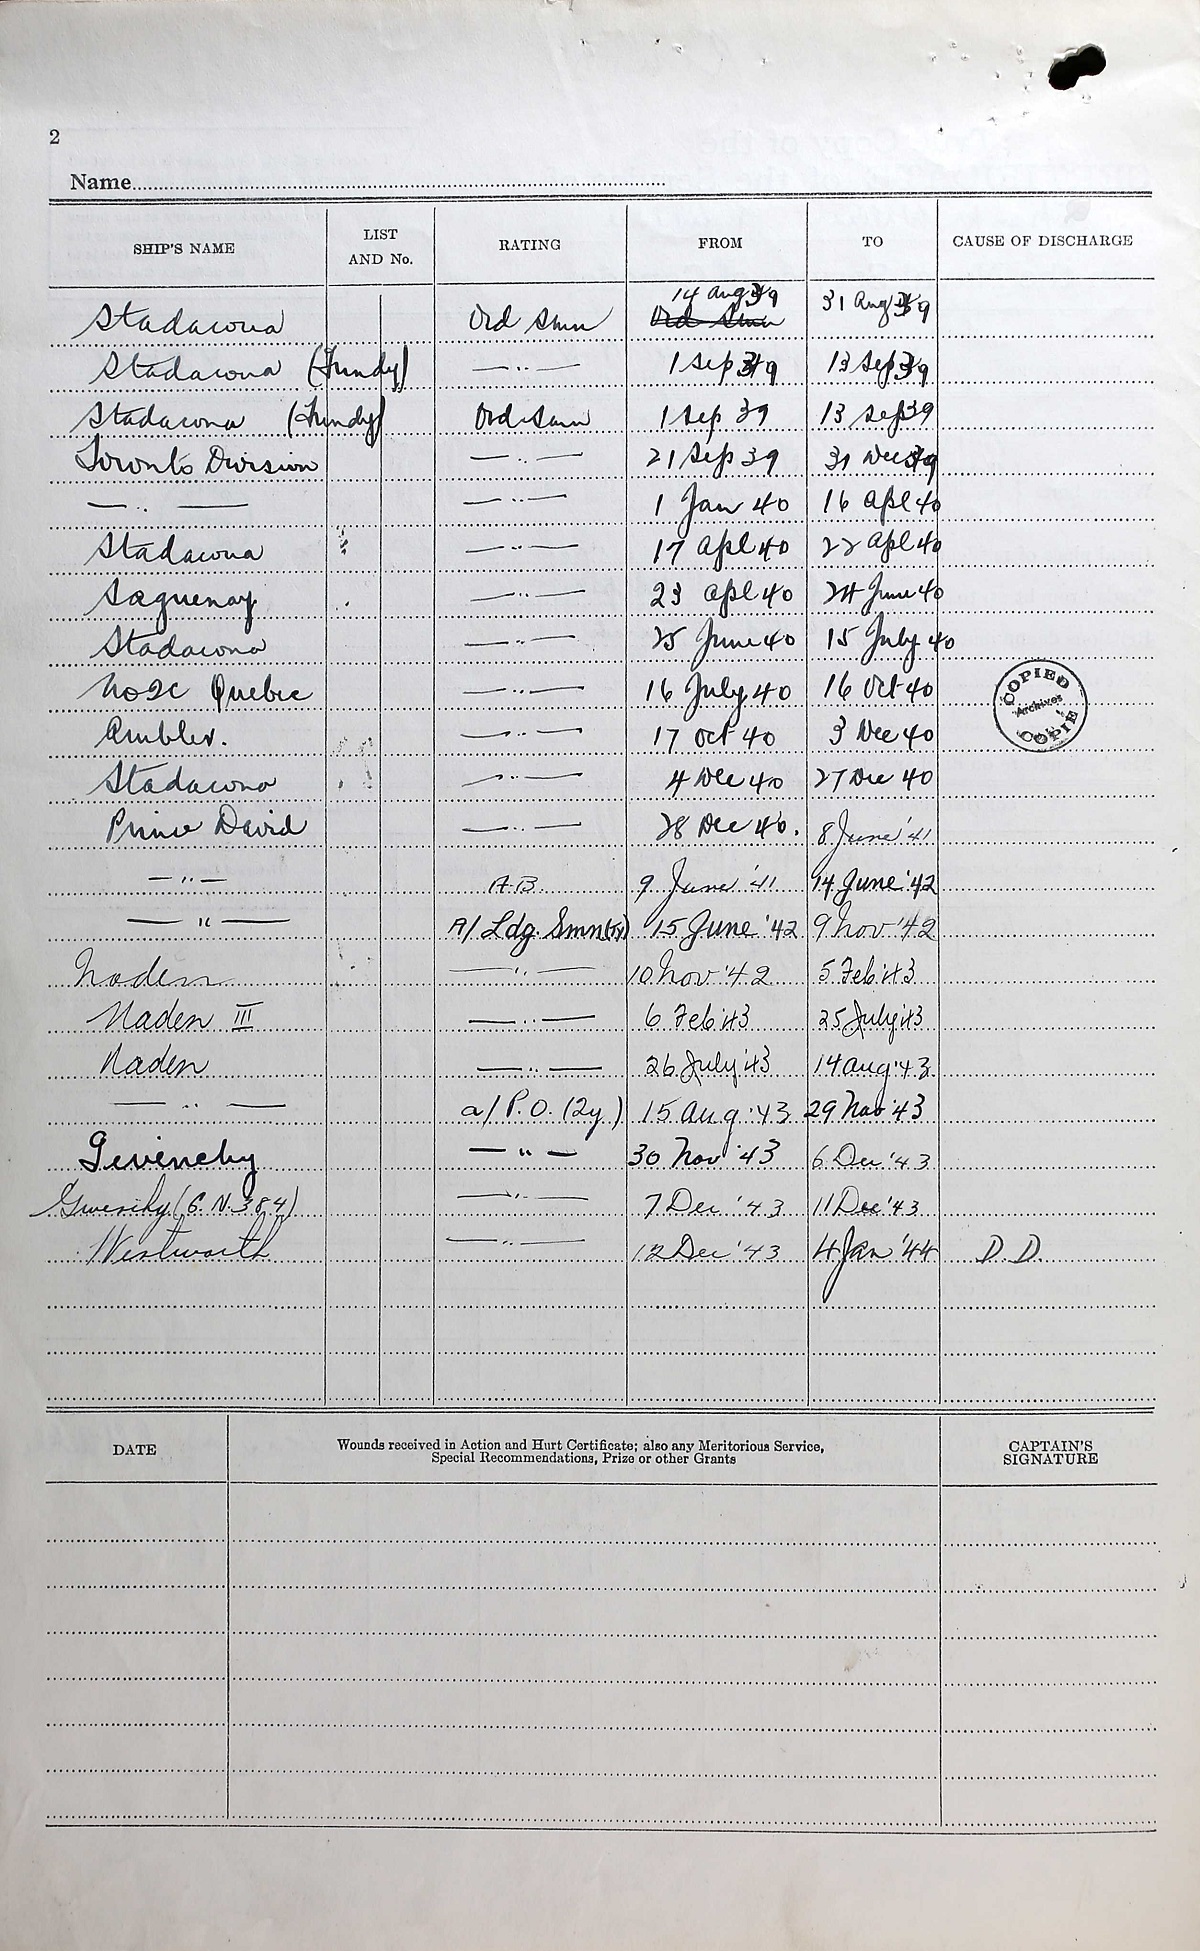 2
Name
SHIP'S NAME LIST AND No. RATING FROM TO CAUSE OF DISCHARGE
Stadacona Ord Smn 14 Aug 39 31 Aug 39
Ord Smn
Stadacona (Fundy) —..— 1 Sep 39 13 Sep 39
Stadacona (Fundy) Ord Smn 1 Sep 39 13 Sep 39
Toronto Division —..— 21 Sep 39 31 Dec 39
—..— 1 Jan 40 16 Apl 40
Stadacona —..— 17 Apl 40 22 Apl 40
Saguenay —..— 23 Apl 40 24 June 40
Stadacona —..— 25 June 40 15 July 40
Quebec —..— 16 July 40 16 Oct 40
Ambler. —..— 17 Oct 40 3 Dec 40
Stadacona —..— 4 Dec 40 27 Dec 40
Prince David —..— 28 Dec 40. 8 June '41
—..— A.B. 9 June '41 14 June '42
—"— A/ Ldg. Smn(Ty) 15 June '42 9 Nov '42
Naden —..— 10 Nov '42 5 Feb '43
Naden III —..— 6 Feb '43 25 July '43
Naden —..— 26 July '43 14 Aug '43
—..— a/ P.O. (Ty.) 15 Aug '43 29 Nov '43
Givenchy —"— 30 Nov '43 6 Dec '43
Givenchy (C.N. 384) —..— 7 Dec '43 11 Dec '43
Wentworth —..— 12 Dec '43 4 Jan '44 D.D.
COPIED
Archives
COPIE
DATE Wounds received in Action and Hurt Certificate; also any Meritorious Service, Special Recommendations, Prize or other Grants CAPTAIN'S SIGNATURE